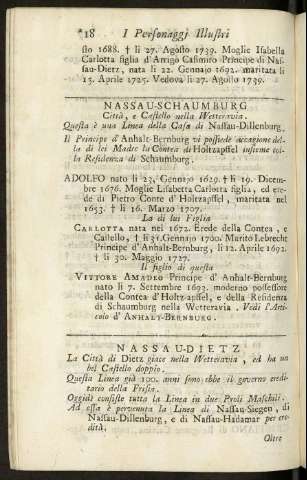 18 I Personaggj Illustri
sto 1688. † li 27. Agosto 1739. Moglie Isabella
Carlotta figlia d'Arrigo Casimiro Principe di Nas-
sau-Dietz, nata li 22. Gennajo 1692. maritata li
15. Aprile 1725. Vedova li 27. Agosto 1739.
NASSAU-SCHAUMBURG
Città, e Castello nella Wetteravia.
Questa è una Linea della Casa di Nassau-Dillenburg.
Il Principe d'Anhalt-Bernburg vi possiede a cagione del-
la di lei Madre la Contea di Holtzapffel insieme col-
la Residenza di Schaumburg.
ADOLFO nato li 23. Gennajo 1629. † li 19. Dicem-
bre 1676. Moglie Lisabetta Carlotta figlia, ed ere-
de di Pietro Conte d'Holtzapffel, maritata nel
1653. † li 16. Marzo 1707.
La di lui Figlia
CARLOTTA nata nel 1672. Erede della Contea, e
Castello, † li 31. Gennajo 1700. Marito Lebrecht
Principe d'Anhalt-Bernburg, li 12. Aprile 1692.
† li 30. Maggio 1727.
Il figlio di questa
VITTORE AMADEO Principe d'Anhalt-Bernburg
nato li 7. Settembre 1693. moderno possessore
della Contea d'Holtz-apffel, e della Residenza
di Schaumburg nella Wetteravia. Vedi l'Arti-
colo d'ANHALT-BERNBURG.
NASSAU-DIETZ
La Città di Dietz giace nella Wetteravia, ed ha un
bel Castello doppio.
Questa Linea già 100. anni sono ebbe il governo eredi-
tario della Frisia.
Oggidì consiste tutta la Linea in due Proli Maschili.
Ad essa è pervenuta la Linea di Nassau-Siegen, di
Nassau-Dillenburg, e di Nassau-Hadamar per ere-
dità.
Oltre